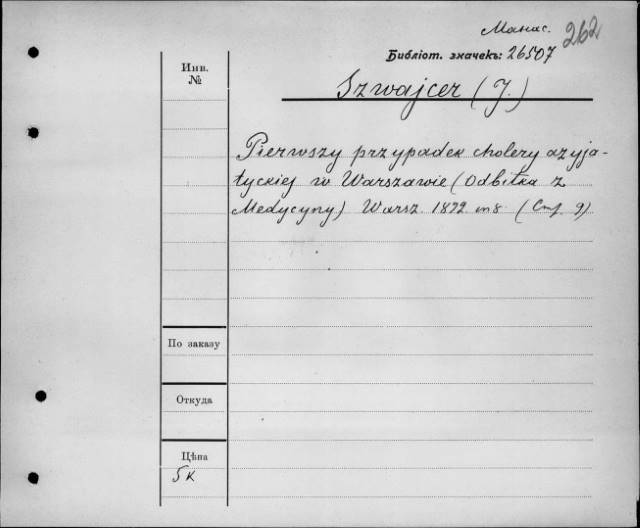 Манас. 262
Библіот. значекъ: 26507
Инв.
№
Szwajcer (J.)
Pierwszy przypadek cholery azyja-
tyckiej w Warszawie (Odbitka z
Medycyny) Warsz. 1892. in 8 (Стр. 9)
По заказу
Откуда
Цѣна
5 к